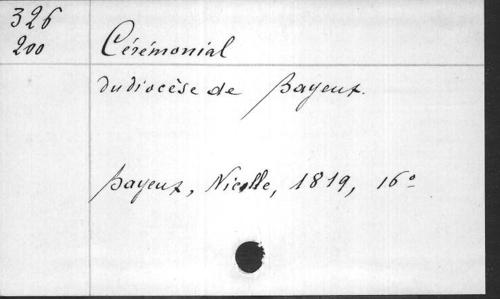 326
200
Cérémonial
du diocèse de Bayeux.
Bayeux, Nicolle, 1819, 16°